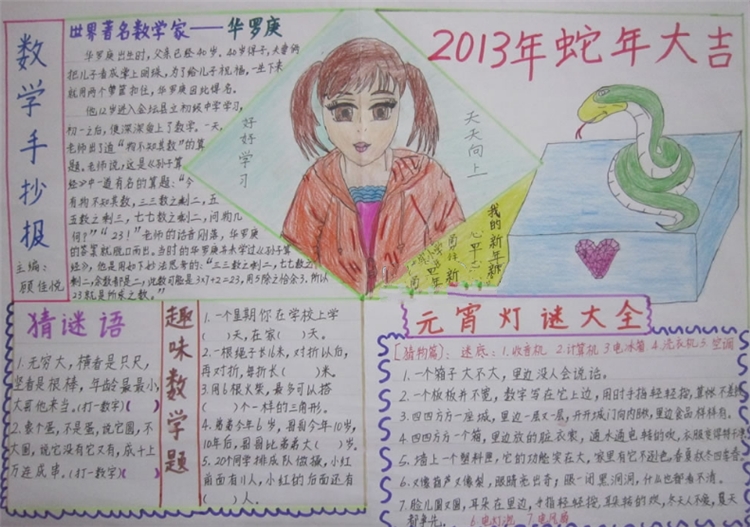 数学手抄报
主编:
顾佳悦
世界著名数学家——华罗庚
华罗庚出生时,父亲已经40岁。40岁得子,夫妻俩
把儿子看成掌上明珠,为了给儿子祝福,一生下来
就用两个箩筐扣住,华罗庚因此得名。
他12岁进入金坛县立初级中学学习,
初一之后,便深深爱上了数学。一天,
老师出了道“物不知其数”的算
题。老师说,这是《孙子算
经》中一道有名的算题:“今
有物不知其数,三三数之剩二,五
五数之剩三,七七数之剩二,问物几
何?”“23!”老师的话音刚落,华罗庚
的答案就脱口而出。当时的华罗庚并未学过《孙子算
经》,他是用如下妙法思考的:“三三数之剩二,七七数之
剩二,余数都是二,此数可能是3×7+2=23,用5除之恰余3.所以
23就是所求之数。”
好好学习
天天向上
2013年蛇年大吉
我的新年
猜谜语
1.无穷大,横看是只尺,
竖看是根棒,年龄最最小,
大哥他来当。(打一数字)( )
2.象个蛋,不是蛋,说它圆,不
大圆,说它没有它又有,成千上
万连成串。(打一数字)( )
趣味数学题
1.一个星期你在学校上学
( )天,在家( )天。
2.一根绳子长16米,对折以后,
再对折,每折长( )米。
3.用6根火柴,最多可以搭
( )个一样的三角形。
4.弟弟今年6岁,哥哥今年10岁,
10年后,哥哥比弟弟大( )岁。
5.20个同学排成队做操,小红
前面有11人,小红的后面还有
( )人。
元宵灯谜大全
[猜物篇]: 谜底:1.收音机 2.计算机 3.电冰箱 4.洗衣机 5.空调
1.一个箱子大不大,里边没人会说话。
2.一个板板并不宽,数字写在它上边,用时手指轻轻按,算帐不差
3.四四方方一座城,里边一层又一层,开开城门向内瞅,里边食品样样有。
4.四四方方一个箱,里边放的脏衣裳,通水通电转的欢,衣服变得
5.墙上一个塑料匣,它的功能实在大,家里有它不逊色,
6.又像葫芦又像梨,眼睛亮出奇;眼一闭黑洞洞,什么也都看不清。
7.脸儿圆又圆,耳朵在里边,才指轻轻按,耳朵转的欢,冬天人不爱,夏天
都争先。 6.电灯泡 7.电风扇